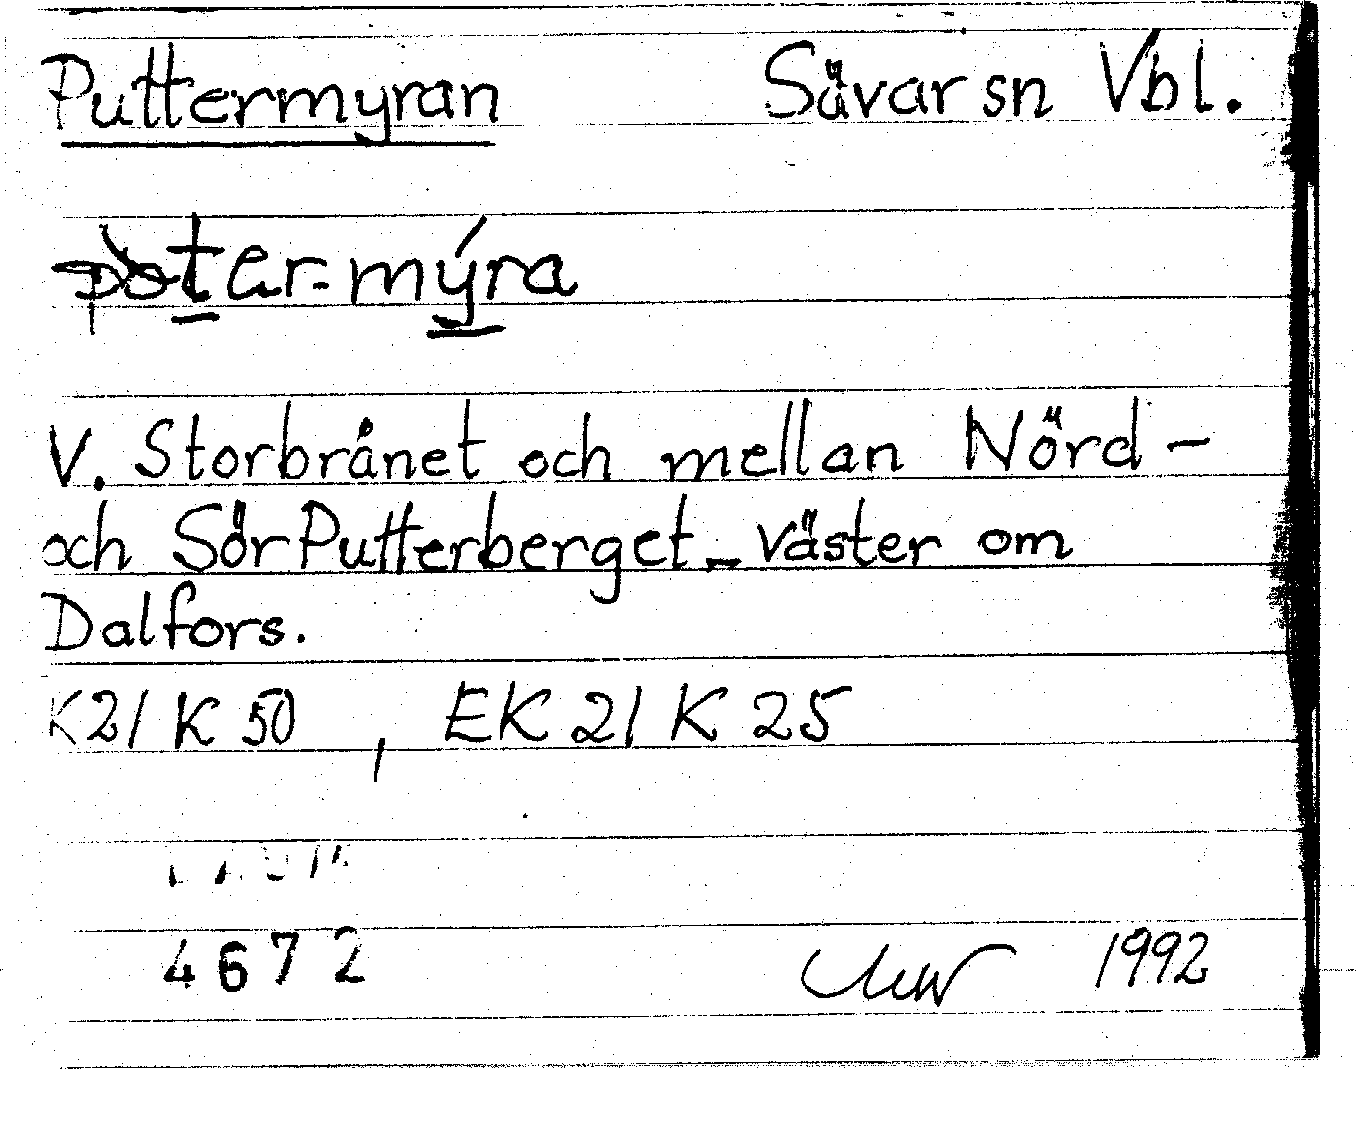 Puttermyran Sävar sn Vbl.
V. Storbrånet och mellan Nörd-
och SörPutterberget - väster om
Dalfors.
K21 K 50 , EK 21 K 25
4672 1992